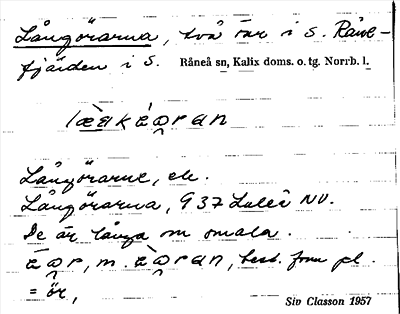 Långörarna, två öar i S. Råne-
fjärden i S. Råneå sn, Kalix doms. o. tg. Norrb. l.
Långörarne, ek.
Långörarna, 937 Luleå NV.
De är långa om smala.
m. best. form pl.
= ör,
Siv Classon 1957